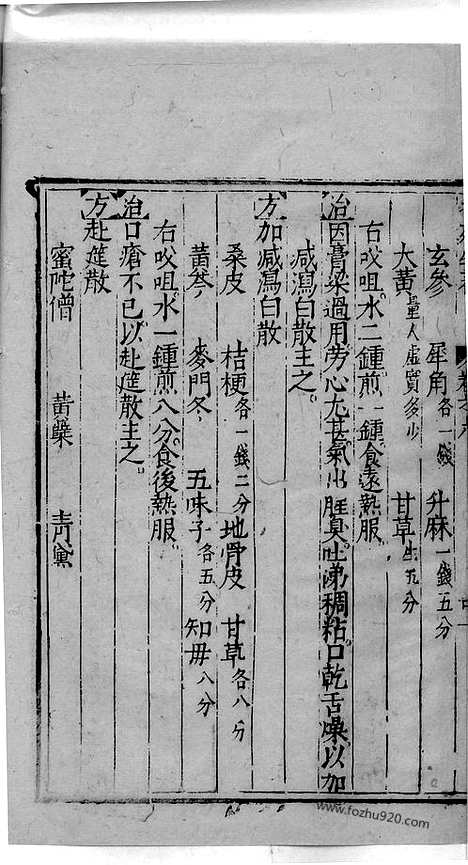 玄參　犀角各一錢　升麻一錢五分
大黃量人虛實多少　甘草生五分
右㕮咀水二鍾煎一鍾食遠熱服
治因膏粱過用勞心尤甚氣出腥臭吐涕稠粘口乾舌燥以加
減瀉白散主之
方加減瀉白散
桑皮　桔梗各一錢二分　地骨皮　甘草各八分
黃芩　麥門冬　五味子各五分　知母八分
右㕮咀水一鍾煎八分食後熱服
治口瘡不已以赴筵散主之
方赴筵散
蜜陀僧　黃蘗　青黛
www.fozhu920.com